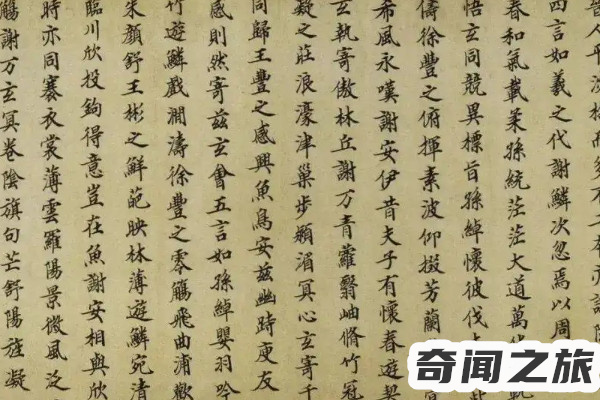 人平淡
四言如羲之代謝鱗次忽焉以周
春和氣載柔孫統茫茫大道萬
悟玄同競異標旨孫綽懷彼伐
儔徐豐之俯揮素波仰掇芳蘭
希風永嘆謝安伊昔夫子有懷春遊契
玄執寄傲林丘謝万青蘿翳岫脩竹冠
凝之莊浪濠津巢步潁湄冥心玄寄千
同歸王豐之感興魚鳥安茲幽跱庾友
感則然寄茲玄會五言如孫綽嬰羽吟
竹遊鱗戲瀾濤徐豐之零觴飛曲浦歡
朱顏舒王彬之鮮葩映林薄遊鱗宛清
臨川欣投鉤得意豈在魚謝安相與欣
時亦同褰衣裳薄雲羅陽景微風泛
觴謝万玄冥卷陰旗句芒舒陽旌凝
奇闻之旅